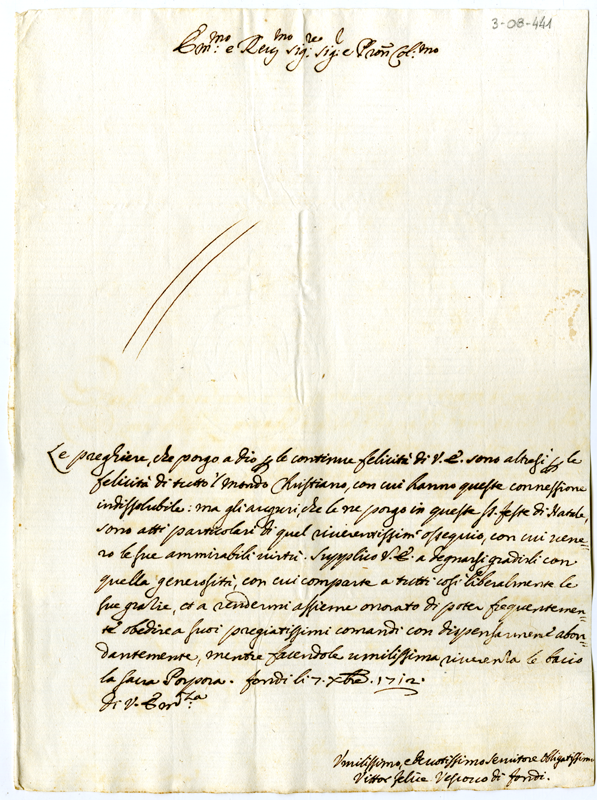 3-08-441
Em:mo e Reu:mo Sig:re Sig:r e Pron Col:mo
Le preghiere, che porgo a Dio p le continue felicità di V. E. sono altresì p le
felicità di tutto 'l Mondo Christiano, con cui hanno queste connessione
indissolubile: ma gli augurj che le ne porgo in queste SS. feste di Natale,
sono atti particolari di quel riverentissim' ossequio, con cui vene=
ro le sue ammirabili virtù. Supplico V. E. a degnarsi gradirli con
quella generosità, con cui comparte a tutti così liberalmente le
sue grazie, et a rendermi assieme onorato di poter frequentemen=
te obedire a suoi pregiatissimi comandi con dispensarmene abon=
dantemente, mentre facendole umilissima riverenza le bacio
la sacra Porpora. Fondi li 7. Xbre. 1712.
di V. Em:za
Vmilissimo, e deuotissimo seruitore obligatissimo
Vittor Felice Vescovo di Fondi.